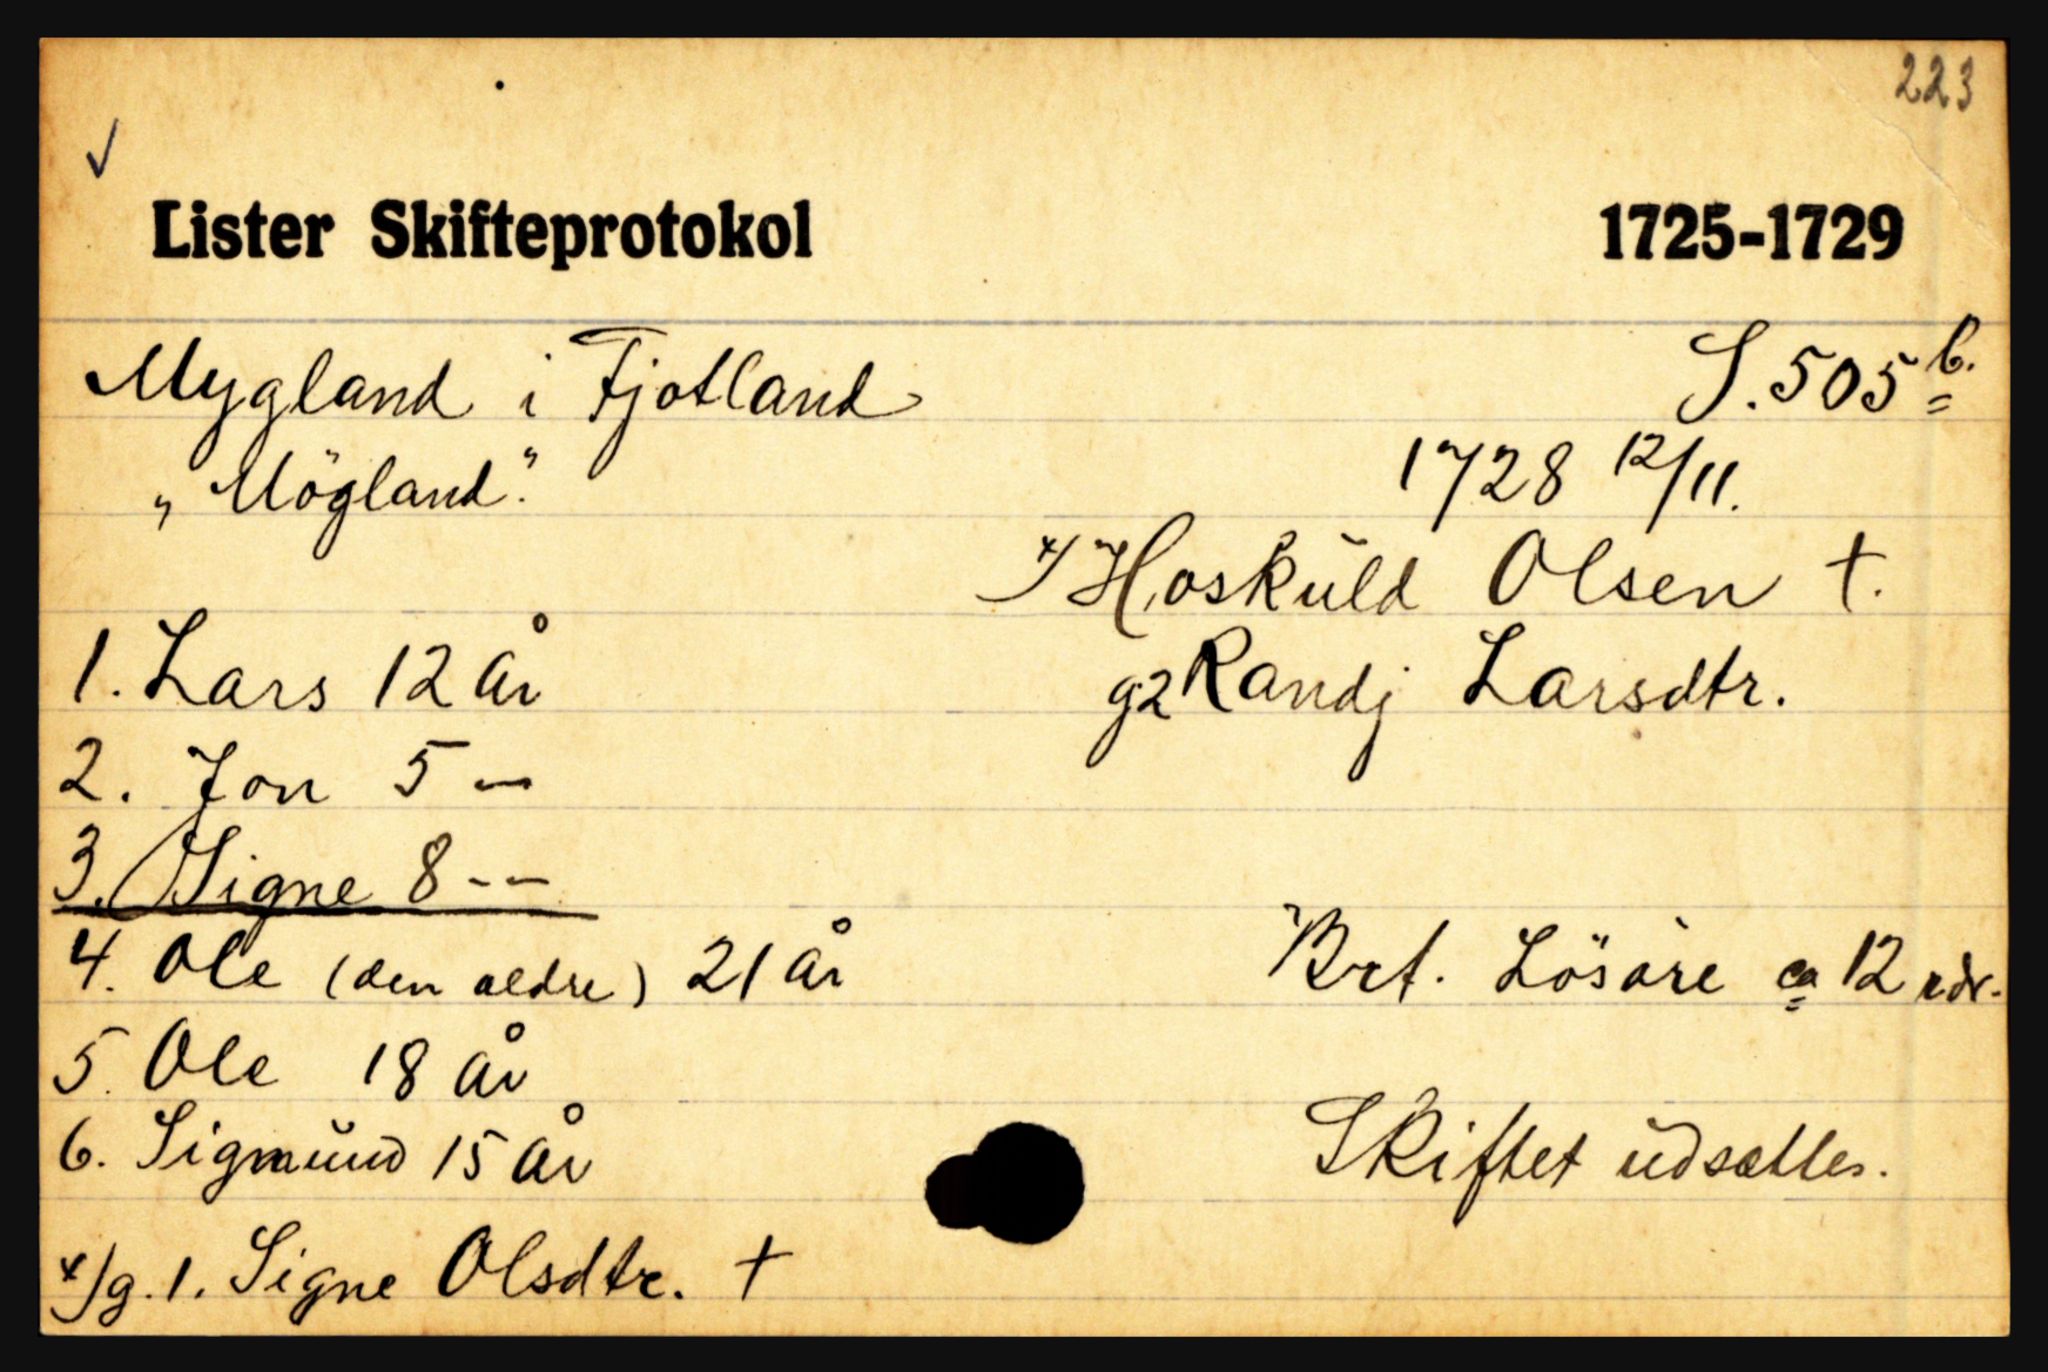 223
✓
Lister Skifteprotokol 1725-1729
Mygland i Fjotland S. 505 b.
„Mögland". 1728 12/11.
x/ Hoskŭld Olsen †.
1. Lars 12 år g2 Randj Larsdtr.
2. Jon 5 —
3. Signe 8 - —
4. Ole (den aeldre) 21 år Brt. Lösöre ca 12 rdr.
5. Ole 18 år
6. Sigmŭnd 15 år Skiftet ŭdsættes.
x/ g. 1. Signe Olsdtr. †